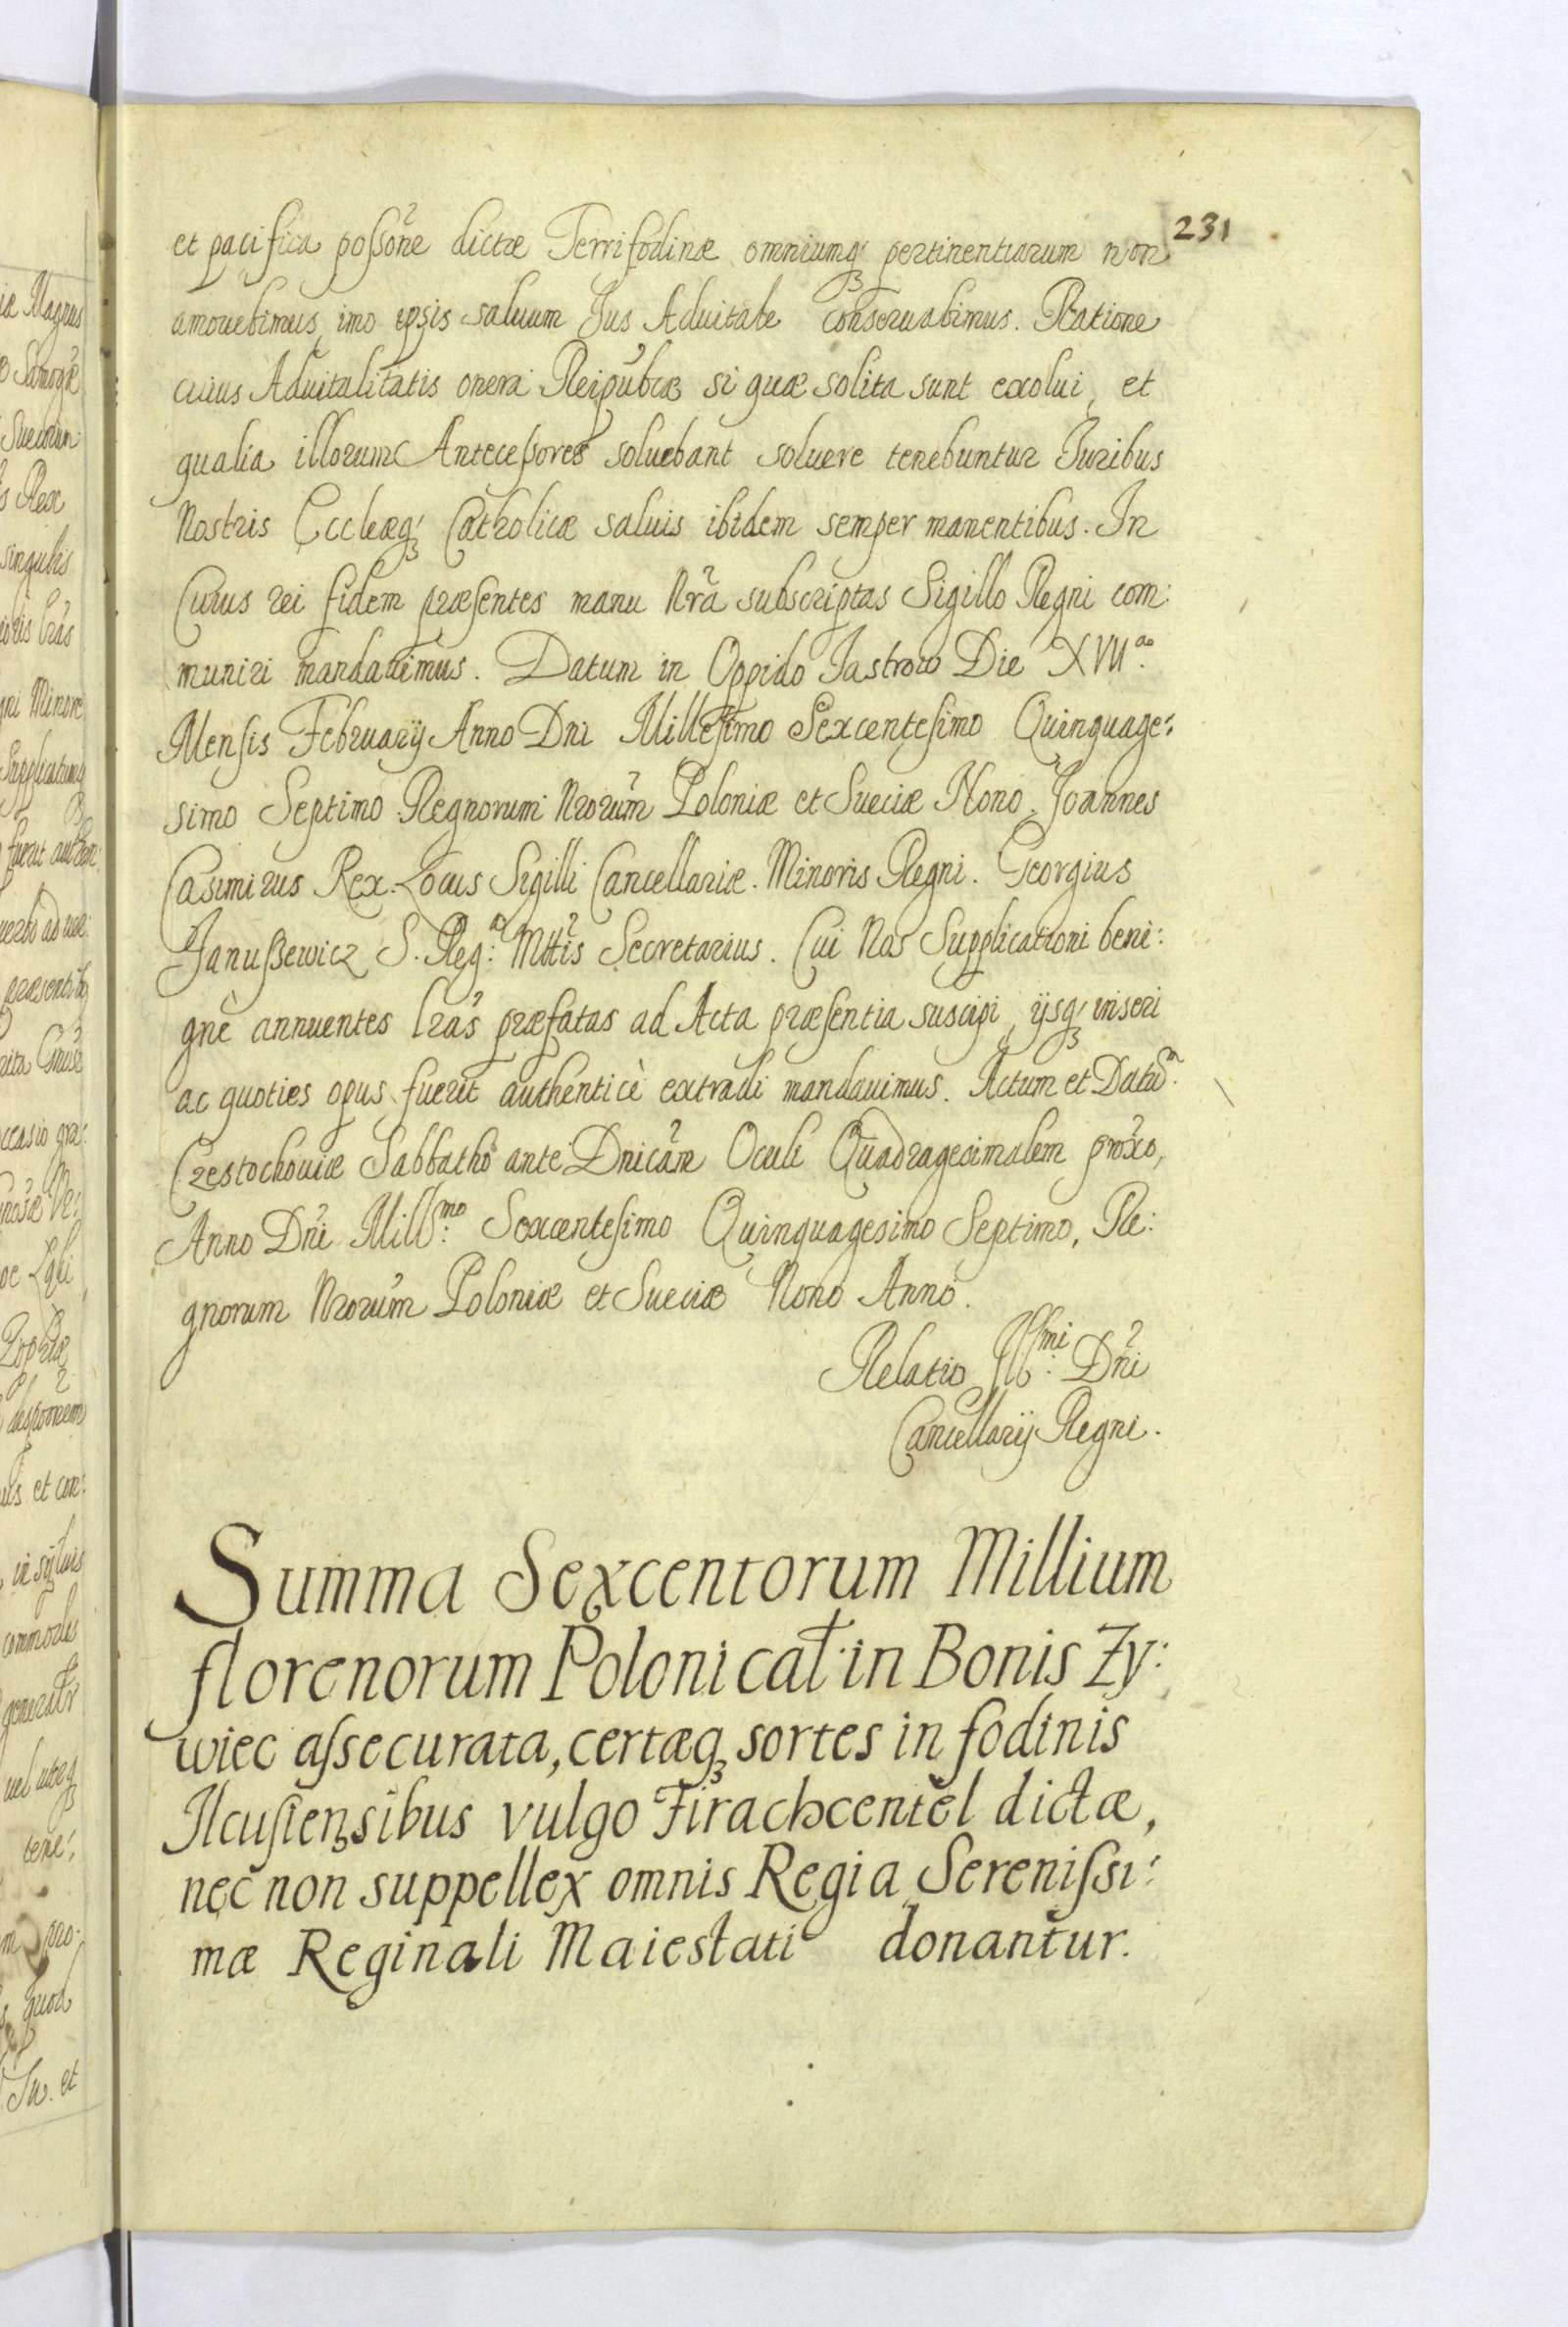 231
et pacifica possone dictæ Terrifodinæ omniumq pertinentiarum non
amouebimus, imo ipsis saluum Jus Aduitale conseruabimus. Ratione
cuius Aduitalitatis onera Reipubcæ si quæ solita sunt exolui, et
qualia illorum Antecessores soluebant soluere tenebuntur Juribus
Nostris Eccleæq Catholicæ saluis ibidem semper manentibus. In
Cuius rei fidem præsentes manu Nrã subscriptas Sigillo Regni com:
muniri mandauimus. Datum in Oppido Jastrow Die XVIIa.
Mensis Februarÿ Anno Dni Millesimo Sexcentesimo Quinquage:
simo Septimo Regnorum Nrorum Poloniæ et Sueciæ Nono. Joannes
Casimirus Rex. Locus Sigilli Cancellariæ Minoris Regni. Georgius
Janussewicz S. Reg: Mttis Secretarius. Cui Nos Supplicationi beni:
gnè annuentes lras præfatas ad Acta præsentia suscipi, ÿsq inseri
ac quoties opus fuerit authenticè extradi mandauimus. Actum et Datũ.
Czestochouiæ Sabbatho ante Dnicam Oculi Quadragesimalem proxo,
Anno Dni Mill:mo Sexcentesimo Quinquagesimo Septimo, Re:
gnorum Nrorum Poloniæ et Sueciæ Nono Anno.
Relatio Ill:mi Dni
Cancellarÿ Regni.
Summa Sexcentorum Millium
florenorum Polonical in Bonis Zy:
wiec assecurata, certæq sortes in fodinis
Ilcusiensibus vulgo Firachcentel dictæ,
nec non suppellex omnis Regia Serenissi:
mæ Reginali Maiestati donantur.